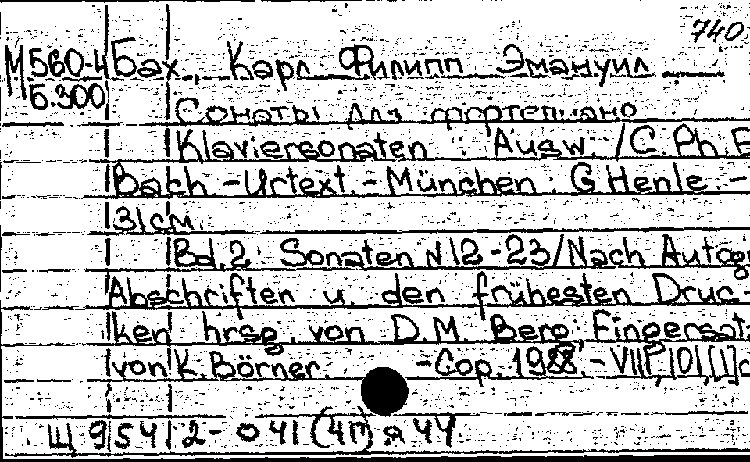 740
М560-4 Бах, Карл Филипп Эмануил
Б.300
Сонаты для фортепиано
Klaviersonaten : Ausw. / C. Ph. E
Bach. - Urtext. - München : G. Henle. -
31 см.
Bd. 2: Sonaten N 12-23 / Nach Autogr
Abschriften u. den frühesten Druc-
ken hrsg. von D.M. Berg; Fingersat
von K. Börner. - Cop. 1988. - VIII, 101, [1] c
Щ 9541 2- 041 (4П) я 44